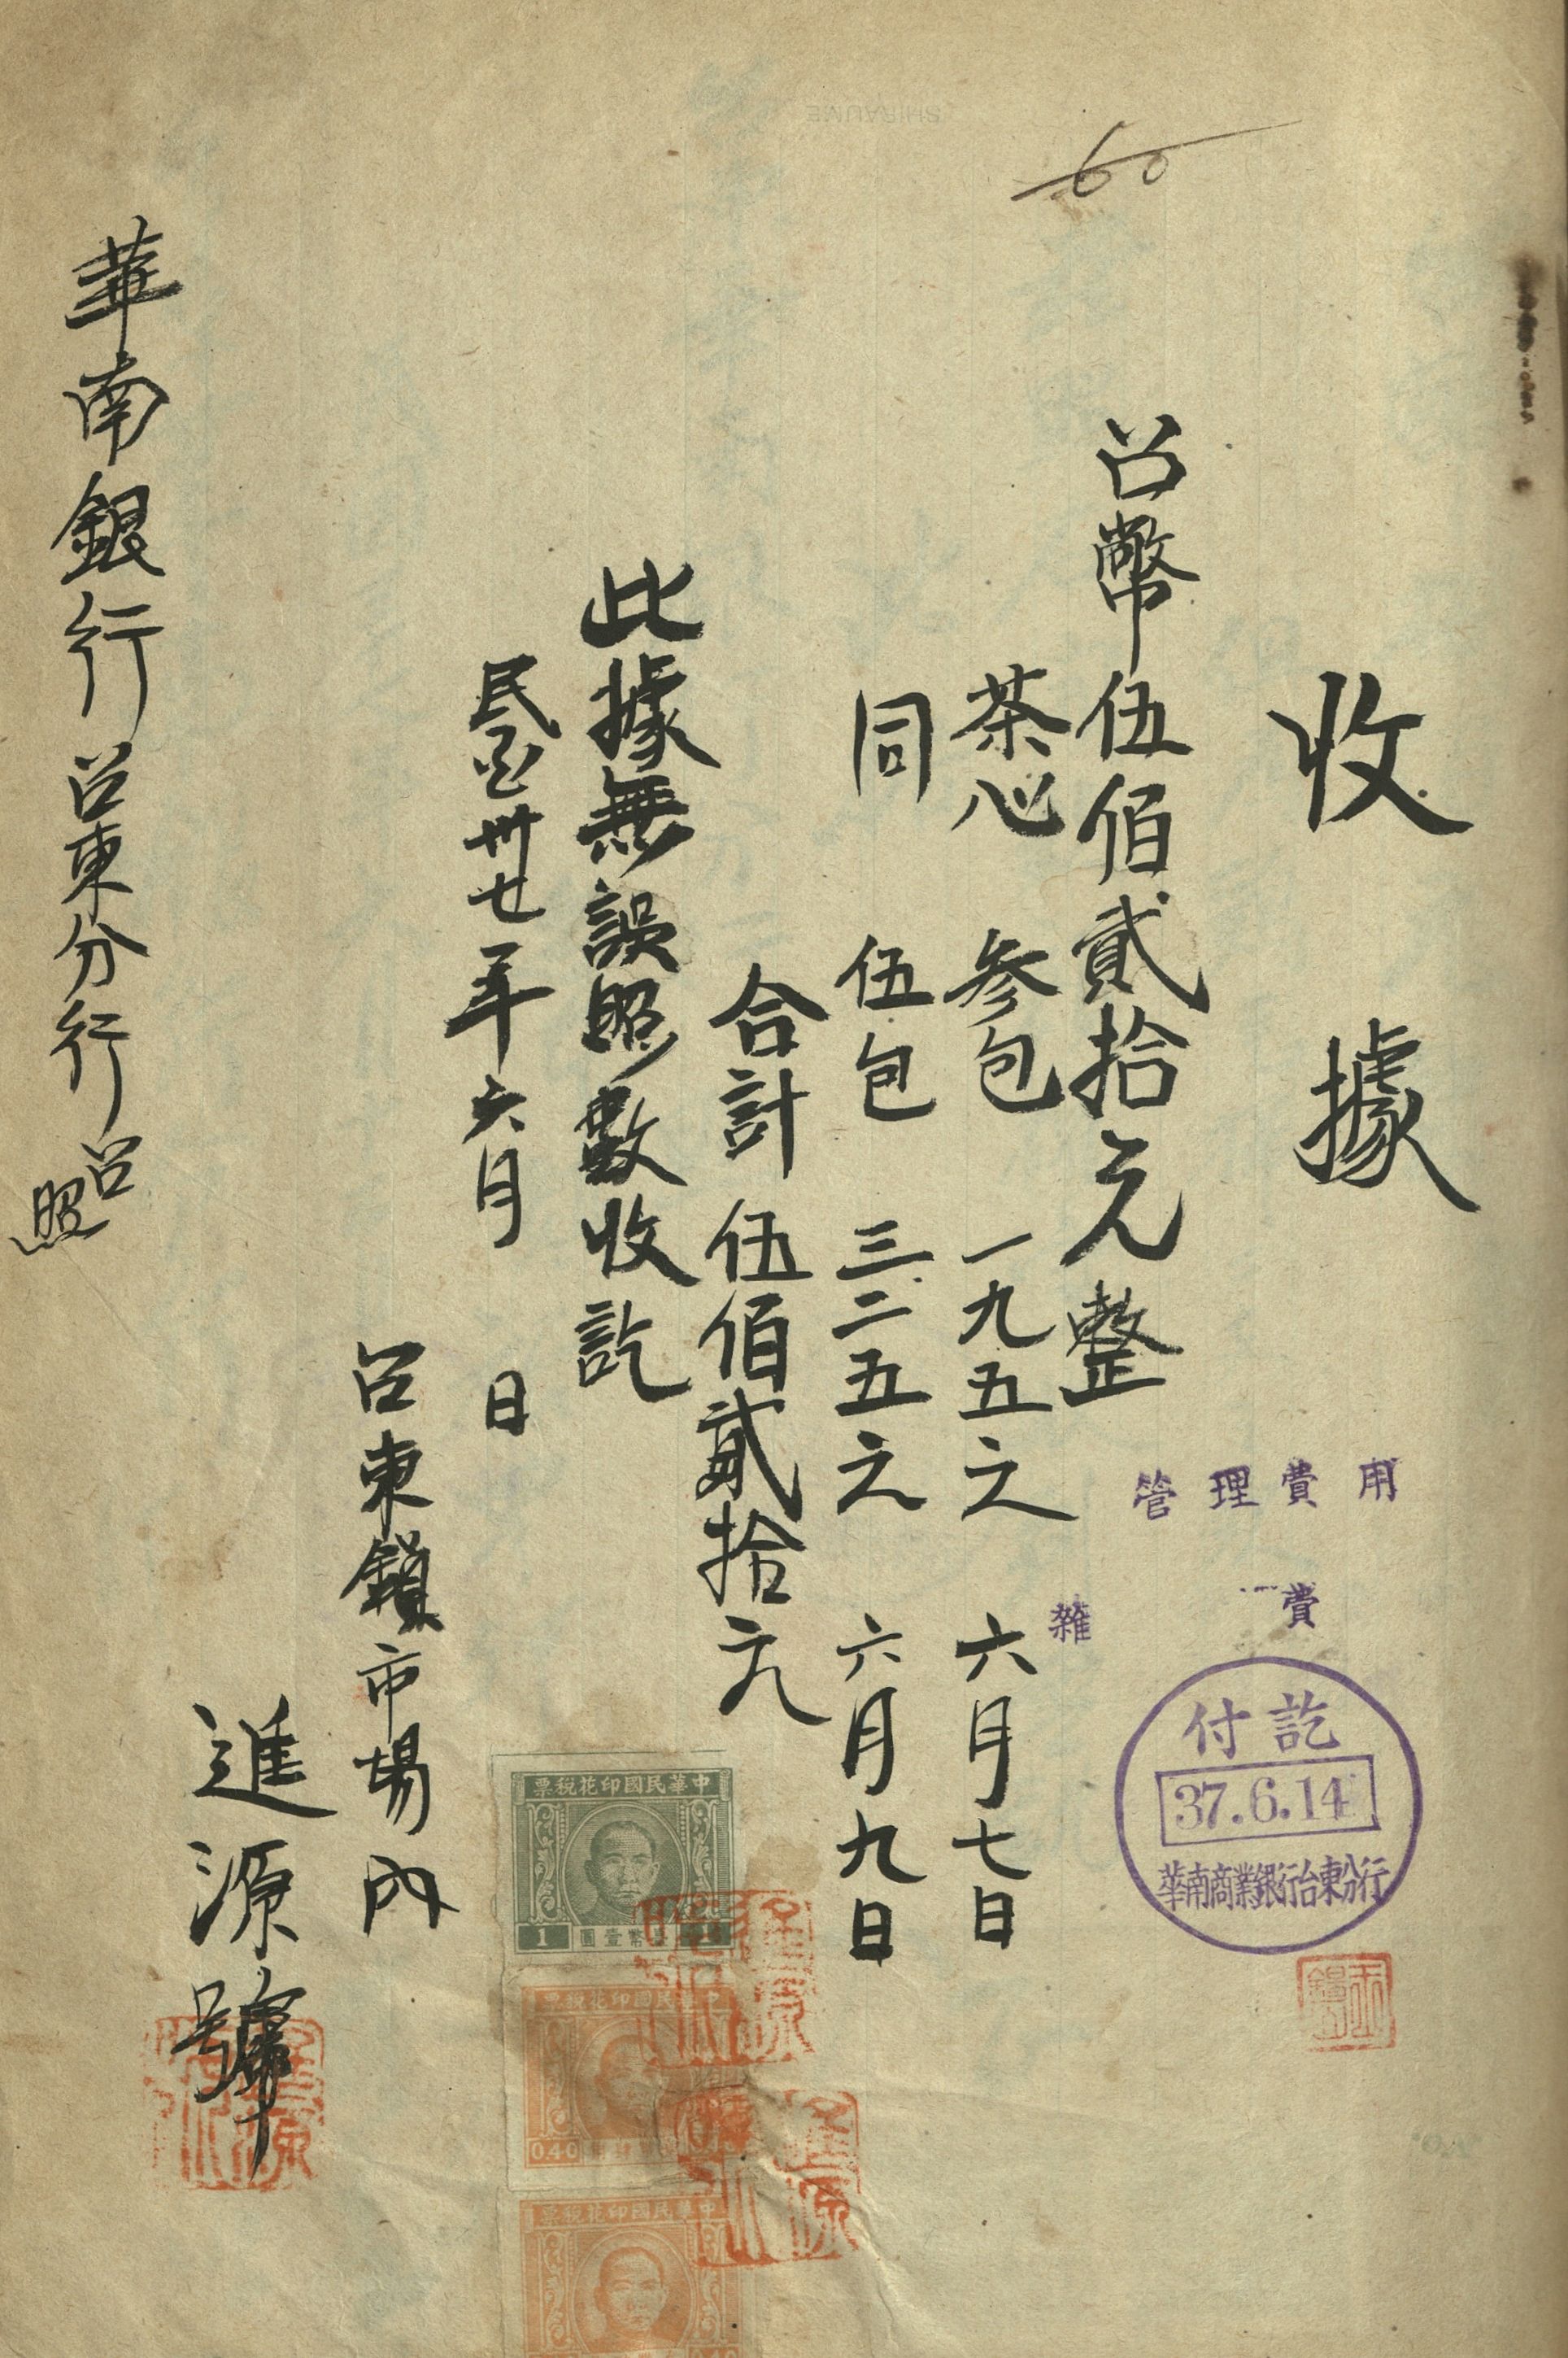 收據
台幣伍佰貳拾元整
茶心 参包 一九五元 六月七日
同 伍包 三二五元 六月九日
合計伍佰貳拾元
此據無誤照數收訖
民国卅七年六月 日
台東鎮市場內
進源號
華南銀行台東分行台照
60
管理費用
雜費
付訖
37.6.14
華南商業銀行台東分行
中華民國印花稅票
1 幣壹圓 1
中華民國印花稅票
0.40
中華民國印花稅票
SHIRAUME